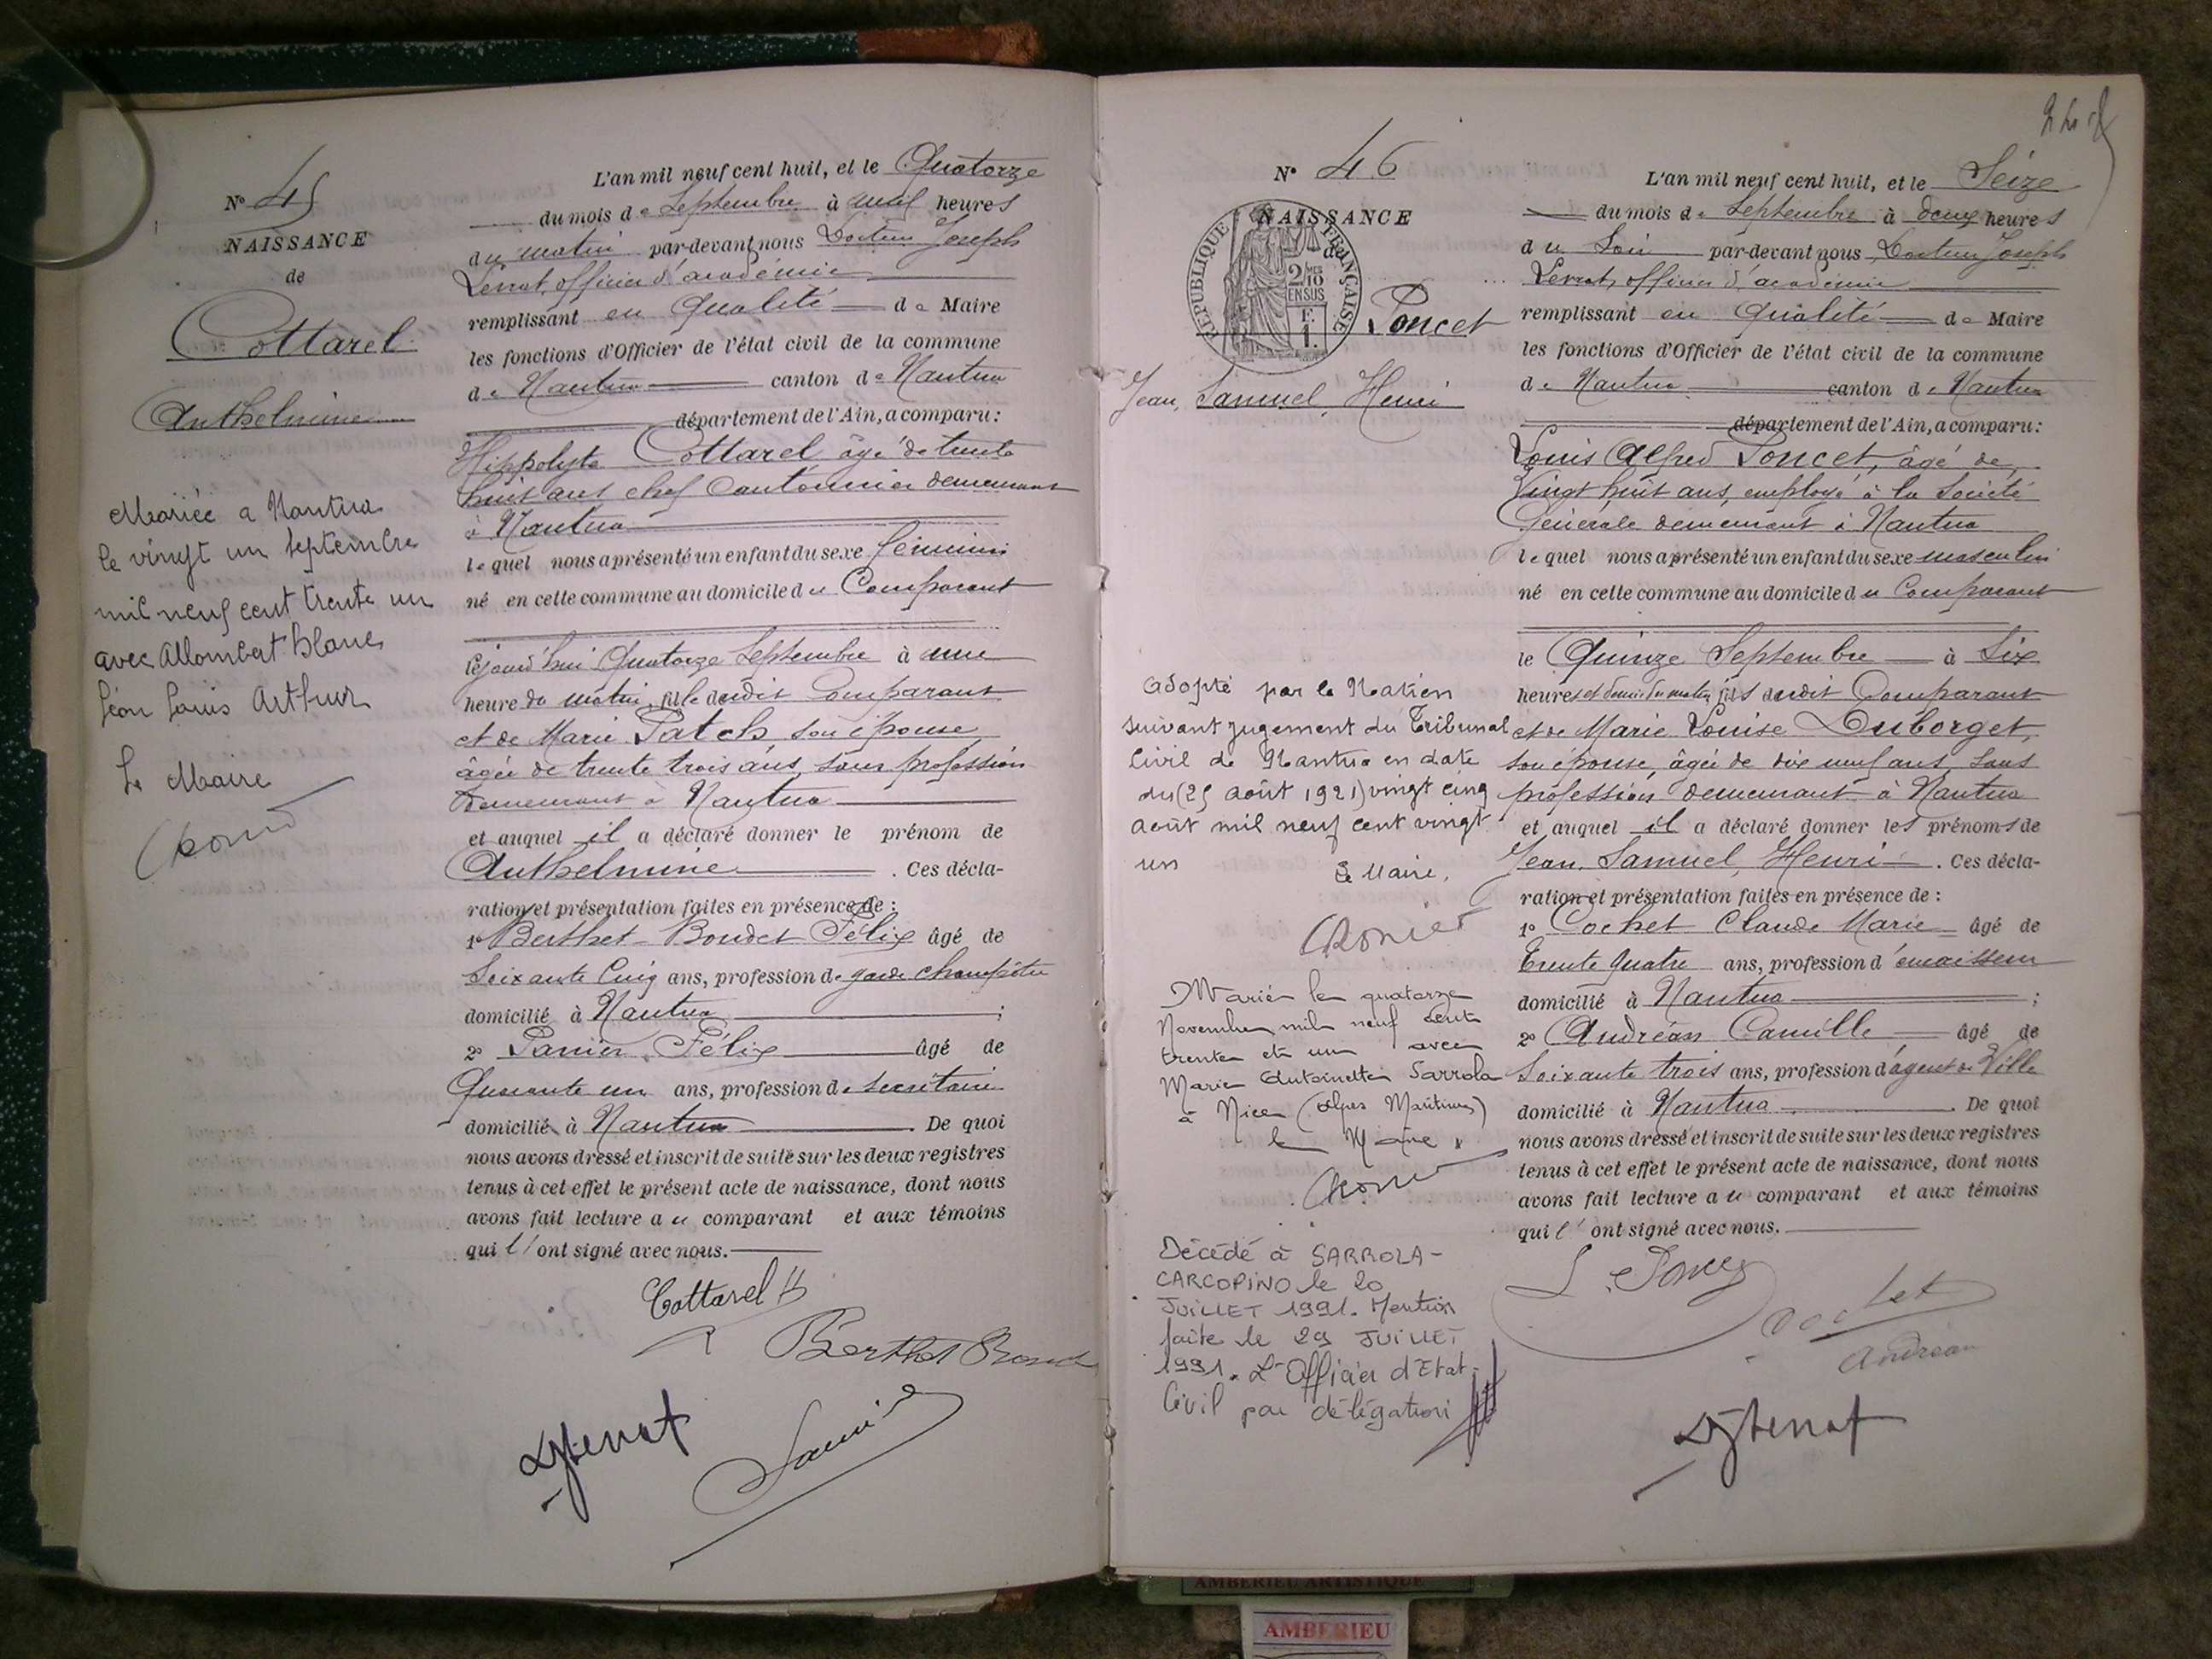 N° 45
NAISSANCE
de
Cottarel
Anthelmine
Mariée a Nantua
le vingt un septembre
mil neuf cent trente un
avec Allombert Blanc
Léon Louis Arthur
Le Maire
L'an mil neuf cent huit, et le Quatorze
du mois de Septembre à neuf heures
du matin par-devant nous Docteur Joseph
officier d'académie
remplissant en qualité de Maire
les fonctions d'Officier de l'état civil de la commune
de Nantua canton de Nantua
département de l'Ain, a comparu:
Hippolyte Cottarel âgé de trente
huit ans chef cantonnier demeurant
à Nantua
lequel nous a présenté un enfant du sexe féminin
né en cette commune au domicile du Comparant
cejourd'hui Quatorze Septembre à une
heure du matin, fille dudit Comparant
et de Marie Patch son épouse
âgée de trente trois ans, sans profession
demeurant à Nantua
et auquel il a déclaré donner le prénom de
Anthelmine. Ces décla-
ration et présentation faites en présence de:
1° Berthet-Boudet Félix âgé de
Soixante Cinq ans, profession de garde champêtre
domicilié à Nantua;
2° Panier Félix âgé de
Quarante un ans, profession de secrétaire
domicilié à Nantua. De quoi
nous avons dressé et inscrit de suite sur les deux registres
tenus à cet effet le présent acte de naissance, dont nous
avons fait lecture au comparant et aux témoins
qui l'ont signé avec nous.
Cottarel H
Berthet
N° 46
NAISSANCE
de
RÉPUBLIQUE FRANÇAISE
2/10 MES
EN SUS
F.
1.
Poncet
Jean, Samuel, Henri
Adopté par la Nation
suivant jugement du Tribunal
Civil de Nantua en date
du (25 août 1921) vingt cinq
août mil neuf cent vingt
un
Le Maire,
Marié le quatorze
Novembre mil neuf cent
trente et un avec
Marie Antoinette Sarrola
à Nice (Alpes Maritimes)
le Maire
Décédé à SARROLA-
CARCOPINO le 20
JUILLET 1991. Mention
faite le 29 JUILLET
1991. L'Officier d'Etat-
Civil par délégation
L'an mil neuf cent huit, et le Seize
du mois de Septembre à deux heures
du Soir par-devant nous Docteur Joseph
officier d'académie
remplissant en qualité de Maire
les fonctions d'Officier de l'état civil de la commune
de Nantua canton de Nantua
département de l'Ain, a comparu:
Louis Alfred Poncet, âgé de
Vingt huit ans, employé à la Société
Générale demeurant à Nantua
lequel nous a présenté un enfant du sexe masculin
né en cette commune au domicile du Comparant
le Quinze Septembre à Six
heures et demie du matin fils dudit Comparant
et de Marie Louise Duborget,
son épouse, âgée de dix neuf ans, sans
profession demeurant à Nantua
et auquel il a déclaré donner les prénoms de
Jean, Samuel, Henri. Ces décla-
ration et présentation faites en présence de:
1° Cochet Claude Marie âgé de
Trente Quatre ans, profession d'
domicilié à Nantua;
2° Andréan Camille âgé de
Soixante trois ans, profession d'agent de Ville
domicilié à Nantua. De quoi
nous avons dressé et inscrit de suite sur les deux registres
tenus à cet effet le présent acte de naissance, dont nous
avons fait lecture au comparant et aux témoins
qui l'ont signé avec nous.
Andréan
AMBERIEU ARTISTIQUE
AMBERIEU